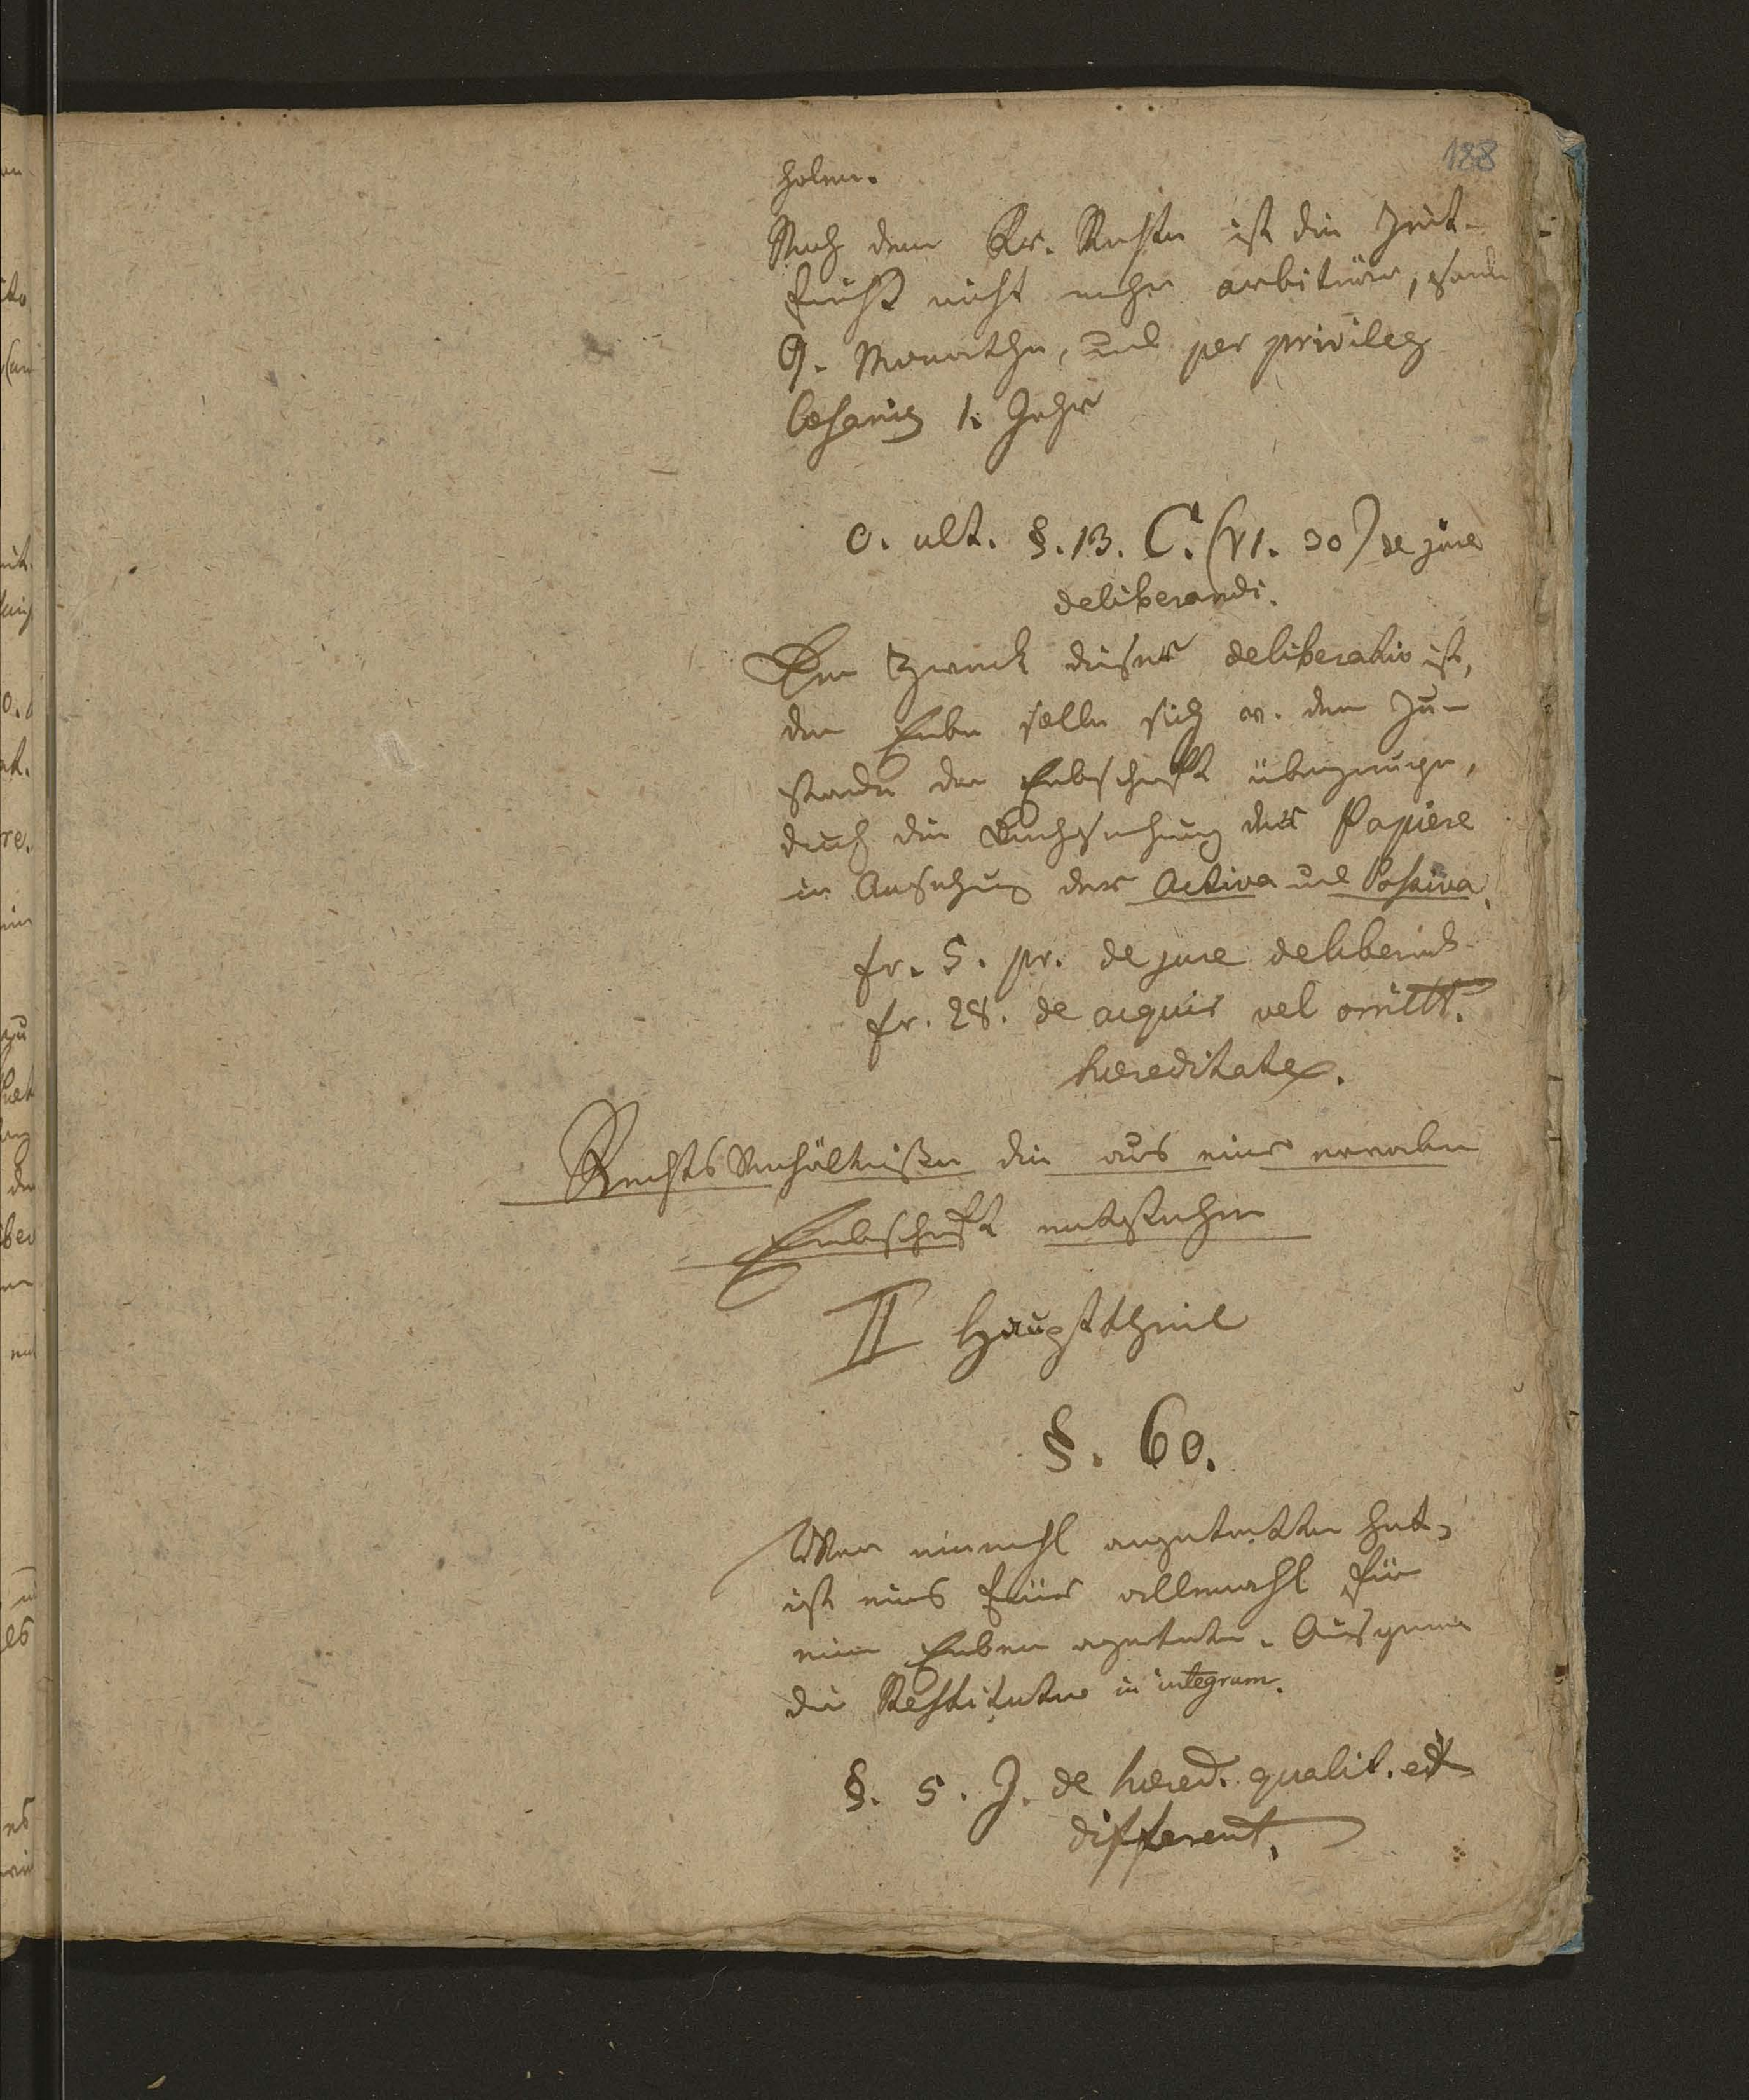 188
holen.
Nach dem Rr. Rechte ist die Zeit-
frist nicht mehr arbiträr, sondn
9. Monathe, und per privileg
1. Jahr
C. ult. §. 13. C. (VI. 30) de jure
deliberandi.
Der Zweck dieser deliberatio ist,
der Erbe solle sich v. dem Zu-
stande der Erbschaft überzeugen,
durch die Durchsehung der Papiere
in Ansehung der Activa und Passiva.
fr. 5. pr. de jure deliberand
fr. 28. de acquir vel omitt.
hereditate.
RechtsVerhältnißen die aus einer erworben
Erbschaft entstehen
II Haupttheil
§. 60.
Wer einmahl angetretten hat,
ist eins für allemahl für
ein Erben
die Restitution in integrum.
§. 5. J. de hered. qualit. et
different.